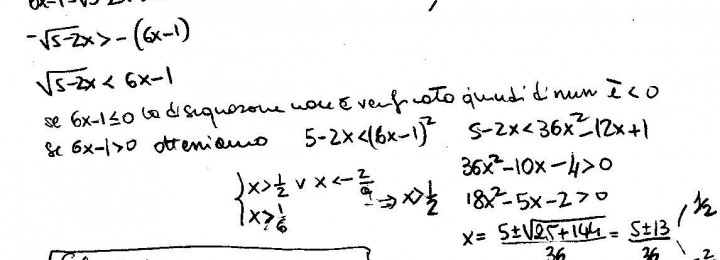 -√5-2x > -(6x-1)
√5-2x < 6x-1
se 6x-1≤0 la disequazione non è verificata quindi il num è <0
Se 6x-1>0 otteniamo 5-2x<(6x-1)² 5-2x<36x²-12x+1
36x²-10x-4>0
{x>1/2 v x<-2/9 ⇒ x>1/2 18x²-5x-2>0
x≥1/6
x = 5±√25+144 / 36 = 5±13 / 36 1/2